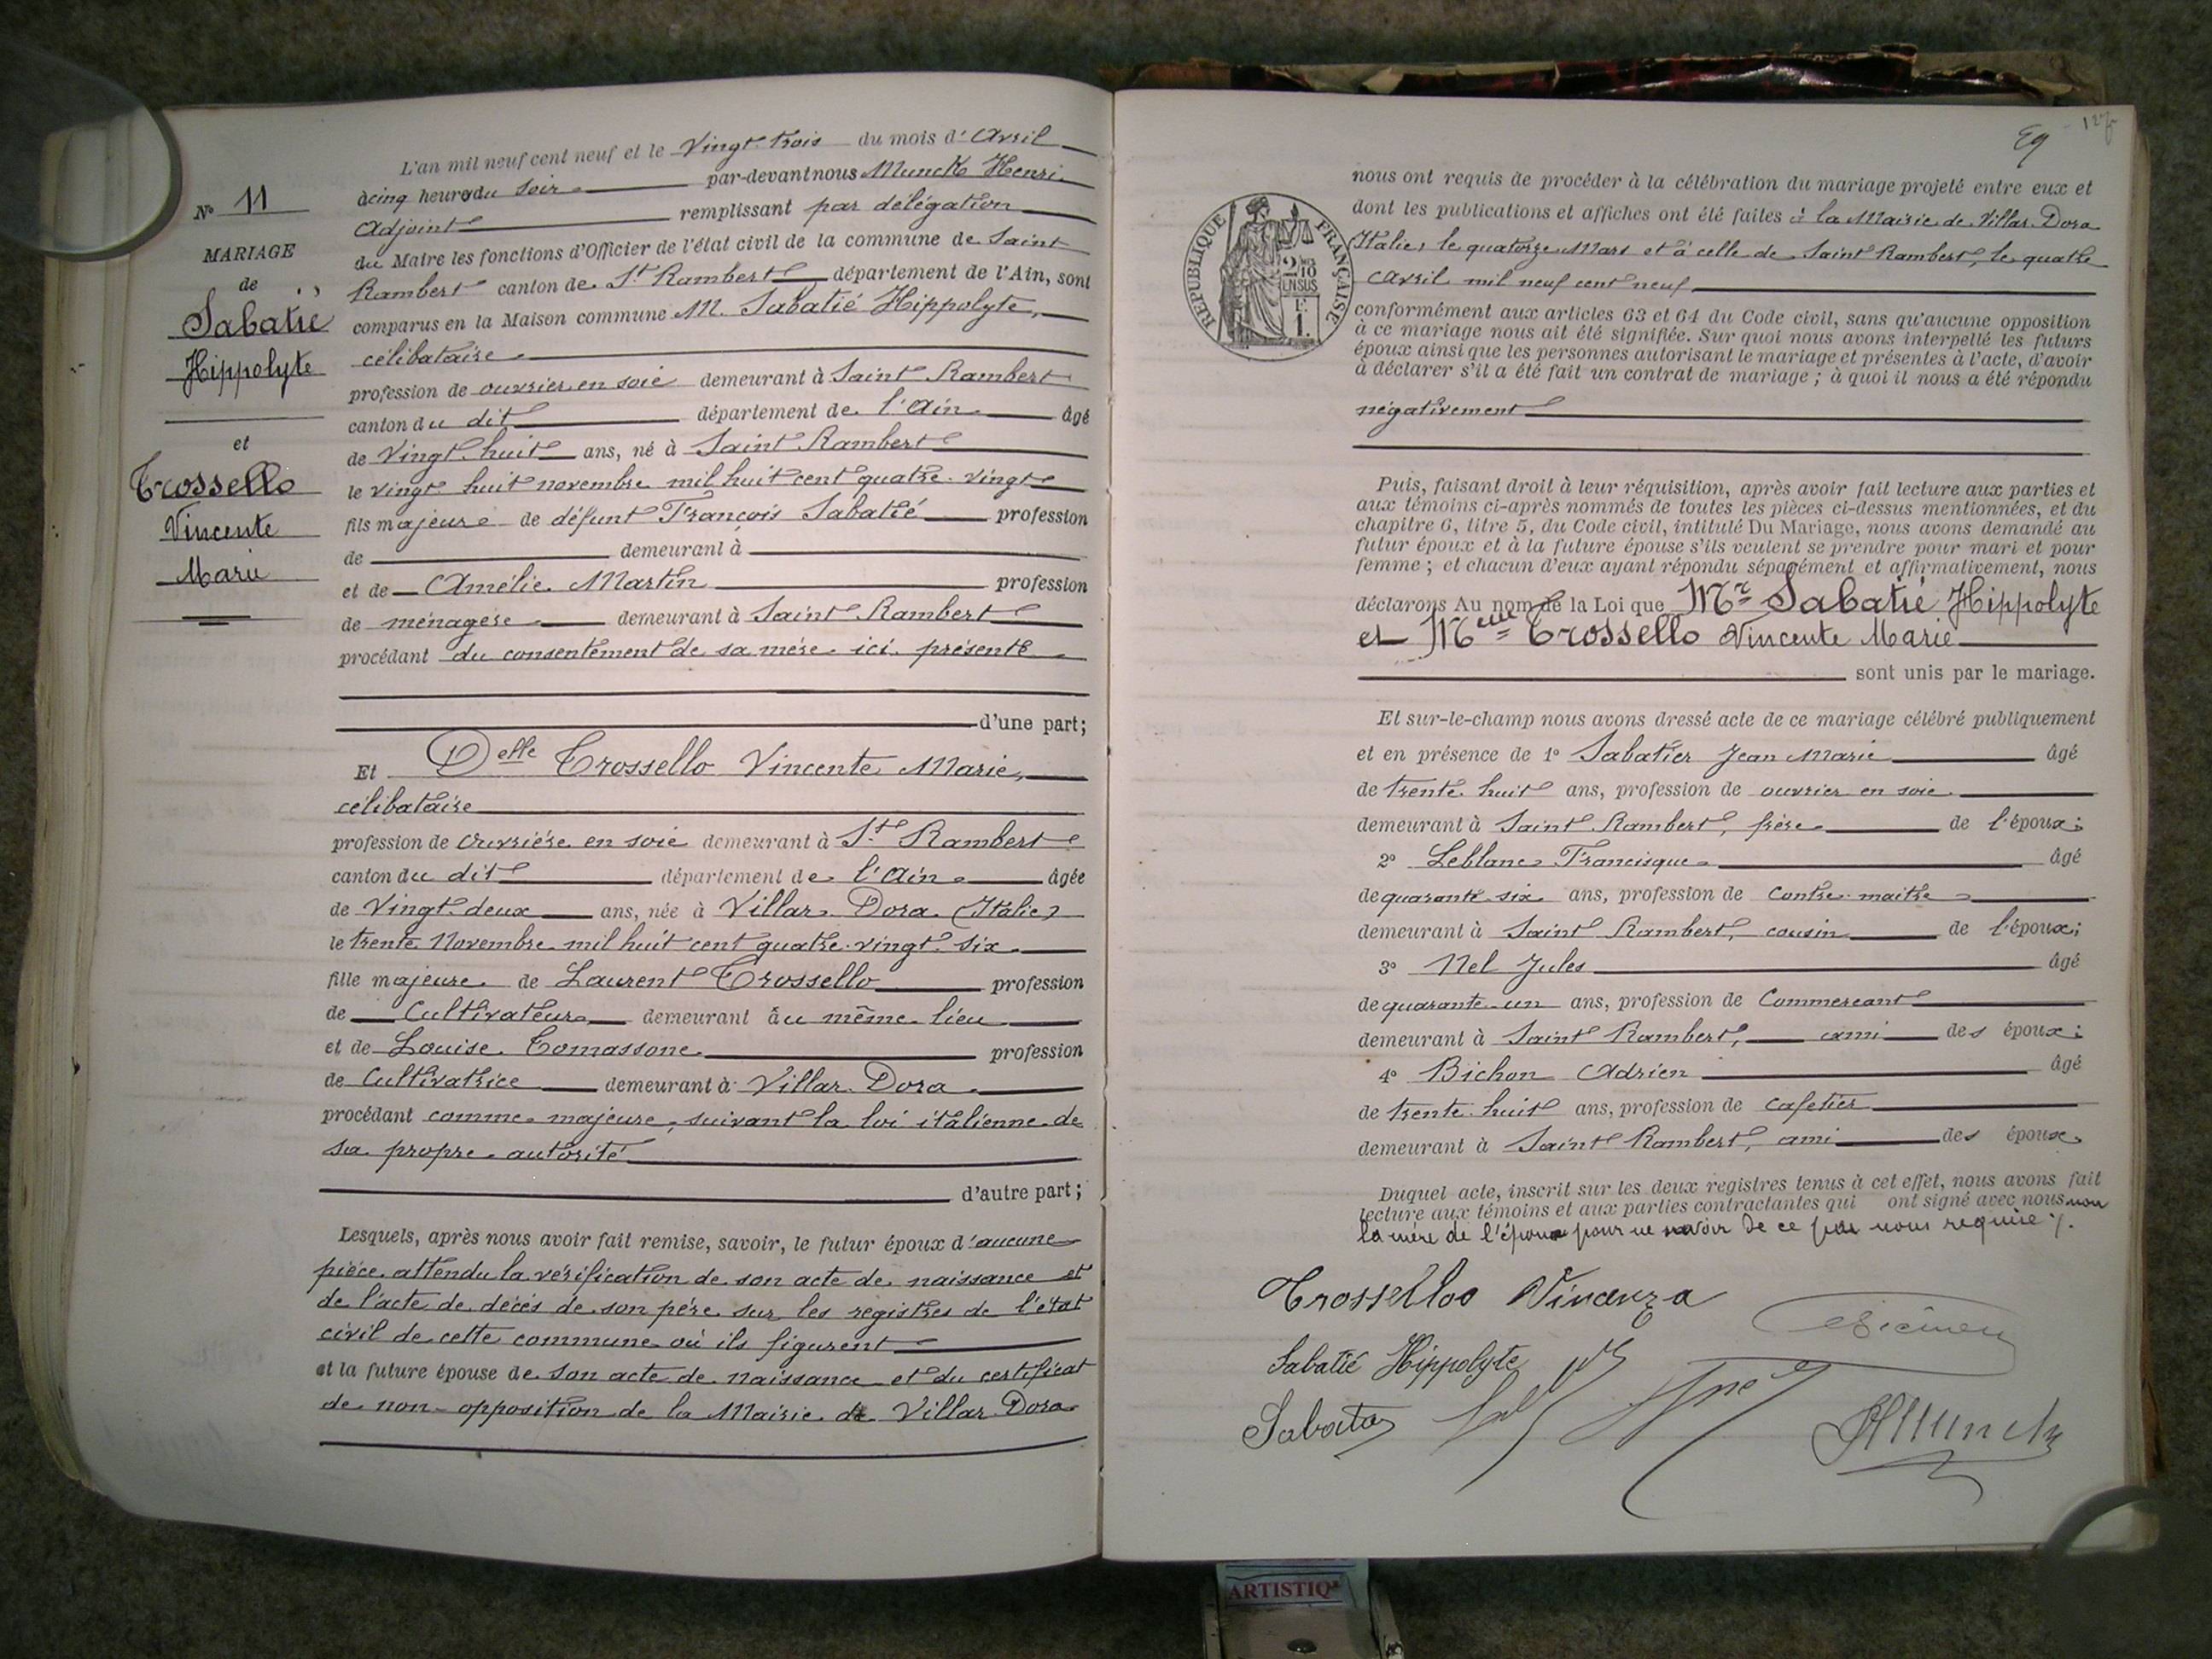 N° 11
MARIAGE
de
Sabatié
Hippolyte
et
Crossello
Vincente
Marie
L'an mil neuf cent neuf et le Vingt trois du mois d'Avril
à cinq heures du soir par-devant nous Munck Henri
Adjoint remplissant par délégation
du Maire les fonctions d'Officier de l'état civil de la commune de Saint
Rambert canton de St Rambert département de l'Ain, sont
comparus en la Maison commune M. Sabatié Hippolyte,
célibataire
profession de ouvrier en soie demeurant à Saint Rambert
canton du dit département de l'Ain âgé
de Vingt huit ans, né à Saint Rambert
le vingt huit novembre mil huit cent quatre-vingt
fils majeur de défunt François Sabatié profession
de demeurant à
et de Amélie Martin profession
de ménagère demeurant à Saint Rambert
procédant du consentement de sa mère ici présente
d'une part;
Et Delle Crossello Vincente Marie,
célibataire
profession de Ouvrière en soie demeurant à St Rambert
canton du dit département de l'Ain âgée
de Vingt-deux ans, née à Villar Dora (Italie)
le trente Novembre mil huit cent quatre-vingt-six
fille majeure de Laurent Crossello profession
de Cultivateur demeurant au même lieu
et de Louise Comassone profession
de Cultivatrice demeurant à Villar Dora
procédant comme majeure, suivant la loi italienne de
sa propre autorité
d'autre part;
Lesquels, après nous avoir fait remise, savoir, le futur époux d'aucune
pièce attendu la vérification de son acte de naissance et
de l'acte de décès de son père sur les registres de l'état
civil de cette commune où ils figurent
et la future épouse de son acte de naissance et du certificat
de non-opposition de la Mairie de Villar Dora
REPUBLIQUE FRANÇAISE
2/10
EN SUS
F.
1.
nous ont requis de procéder à la célébration du mariage projeté entre eux et
dont les publications et affiches ont été faites à la Mairie de Villar Dora
Italie, le quatorze Mars et à celle de Saint Rambert, le quatre
Avril mil neuf cent neuf
conformément aux articles 63 et 64 du Code civil, sans qu'aucune opposition
à ce mariage nous ait été signifiée. Sur quoi nous avons interpellé les futurs
époux ainsi que les personnes autorisant le mariage et présentes à l'acte, d'avoir
à déclarer s'il a été fait un contrat de mariage; à quoi il nous a été répondu
négativement
Puis, faisant droit à leur réquisition, après avoir fait lecture aux parties et
aux témoins ci-après nommés de toutes les pièces ci-dessus mentionnées, et du
chapitre 6, titre 5, du Code civil, intitulé Du Mariage, nous avons demandé au
futur époux et à la future épouse s'ils veulent se prendre pour mari et pour
femme; et chacun d'eux ayant répondu séparément et affirmativement, nous
déclarons Au nom de la Loi que Mr Sabatié Hippolyte
et Melle Crossello Vincente Marie
sont unis par le mariage.
Et sur-le-champ nous avons dressé acte de ce mariage célébré publiquement
et en présence de 1° Sabatier Jean Marie âgé
de trente huit ans, profession de ouvrier en soie
demeurant à Saint Rambert, frère de l'époux;
2° Leblanc Francisque âgé
de quarante six ans, profession de Contre-maître
demeurant à Saint Rambert, cousin de l'époux;
3° Nel Jules âgé
de quarante-un ans, profession de Commercant
demeurant à Saint Rambert, ami des époux;
4° Bichon Adrien âgé
de trente huit ans, profession de cafetier
demeurant à Saint Rambert, ami des époux
Duquel acte, inscrit sur les deux registres tenus à cet effet, nous avons fait
lecture aux témoins et aux parties contractantes qui ont signé avec nous non
la mère de l'époux pour ne savoir de ce par nous requise
Crosselloo Vincenza
Sabatié Hippolyte
HMunck
ARTISTIQ